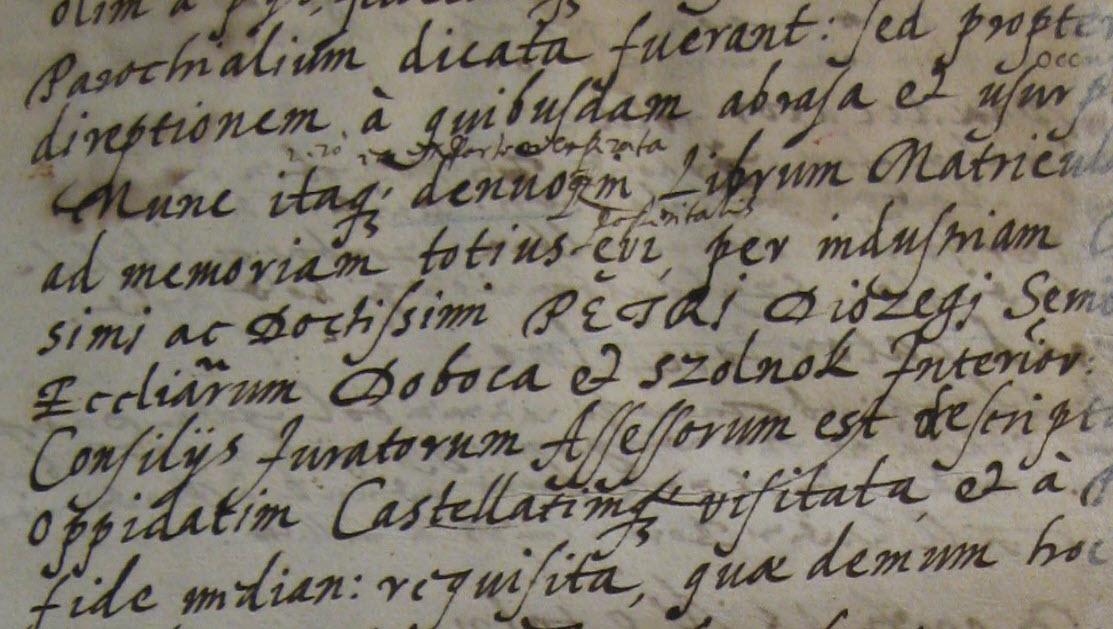 olim a
Parochialium dicata fuerant: sed propte
direptionem à quibusdam abrasa et usur
occu
Nunc itaq; denuo Librum Matricul
posteritatis
ad memoriam totius ævi, per industriam
simi ac Doctissimi PETRI Diószegi Sem
Eccliarum Doboca et Szolnok Interior:
Consilijs Juratorum Assessorum est descript
oppidatim Castellatimq; visitata, et à
fide median: requisita, quæ demum hoc